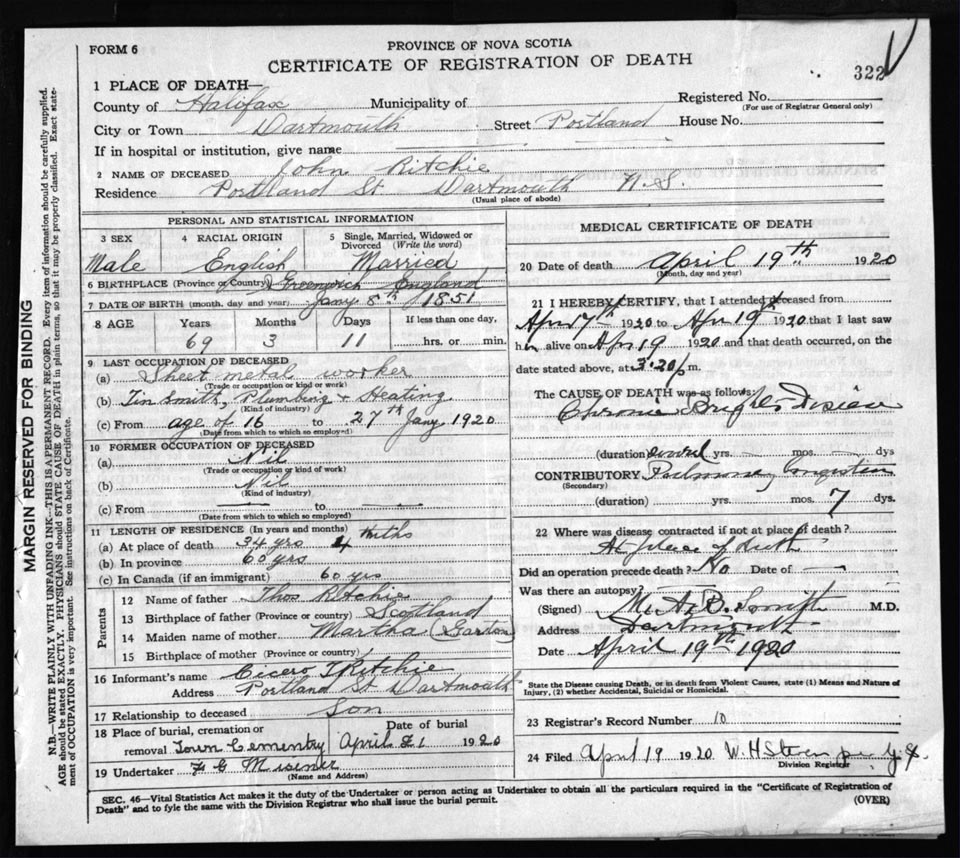 FORM 6
PROVINCE OF NOVA SCOTIA
CERTIFICATE OF REGISTRATION OF DEATH
322
1 PLACE OF DEATH—
County of Halifax Municipality of Registered No.
(For use of Registrar General only)
City or Town Dartmouth Street Portland House No.
If in hospital or institution, give name
2 NAME OF DECEASED John Ritchie
Residence Portland St. Dartmouth N.S.
(Usual place of abode)
PERSONAL AND STATISTICAL INFORMATION
3 SEX 4 RACIAL ORIGIN 5 Single, Married, Widowed or Divorced (Write the word)
Male English Married
6 BIRTHPLACE (Province or Country) Greenwich England
7 DATE OF BIRTH (month, day and year) Jany 8th 1851
8 AGE Years Months Days If less than one day,
69 3 11 hrs. or min.
9 LAST OCCUPATION OF DECEASED
(a) Sheet metal worker
(Trade or occupation or kind of work)
(b) Tin Smith, Plumbing + Heating
(Kind of industry)
(c) From age of 16 to 27th Jany 1920
(Date from which to which so employed)
10 FORMER OCCUPATION OF DECEASED
(a) Nil
(Trade or occupation or kind of work)
(b) Nil
(Kind of industry)
(c) From — to —
(Date from which to which so employed)
11 LENGTH OF RESIDENCE (In years and months)
(a) At place of death 34 yrs 4 mths
(b) In province 60 yrs
(c) In Canada (if an immigrant) 60 yrs
Parents
12 Name of father Thos Ritchie
13 Birthplace of father (Province or country) Scotland
14 Maiden name of mother Martha (Garton)
15 Birthplace of mother (Province or country)
16 Informant's name Cicero T Ritchie
Address Portland St Dartmouth
17 Relationship to deceased Son
18 Place of burial, cremation or removal Town Cementry
Date of burial
April 21 1920
19 Undertaker F G Misener
(Name and Address)
MEDICAL CERTIFICATE OF DEATH
20 Date of death April 19th 1920
(Month, day and year)
21 I HEREBY CERTIFY, that I attended deceased from
Apr 7th 1920 to Apr 19th 1920 that I last saw
him alive on Apr 19 1920 and that death occurred, on the
date stated above, at 3.20 p m.
The CAUSE OF DEATH was as follows:
Chronic Brights Disease
(duration) several yrs. — mos. — dys
CONTRIBUTORY Pulmonary Congestion
(Secondary)
(duration) yrs. — mos. 7 dys.
22 Where was disease contracted if not at place of death?
At place of death
Did an operation precede death? No Date of —
Was there an autopsy?
(Signed) M. A. B. Smith M.D.
Address Dartmouth
Date April 19th 1920
State the Disease causing Death, or in death from Violent Causes, state (1) Means and Nature of
Injury, (2) whether Accidental, Suicidal or Homicidal.
23 Registrar's Record Number 10
24 Filed April 19 1920 W. H Stevens
Division Registrar
SEC. 46—Vital Statistics Act makes it the duty of the Undertaker or person acting as Undertaker to obtain all the particulars required in the "Certificate of Registration of
Death" and to fyle the same with the Division Registrar who shall issue the burial permit.
(OVER)
MARGIN RESERVED FOR BINDING
N.B.—WRITE PLAINLY WITH UNFADING INK—THIS IS A PERMANENT RECORD. Every item of information should be carefully supplied.
AGE should be stated EXACTLY. PHYSICIANS should STATE CAUSE OF DEATH in plain terms, so that it may be properly classified. Exact statement
of OCCUPATION is very important. See instructions on back of Certificate.